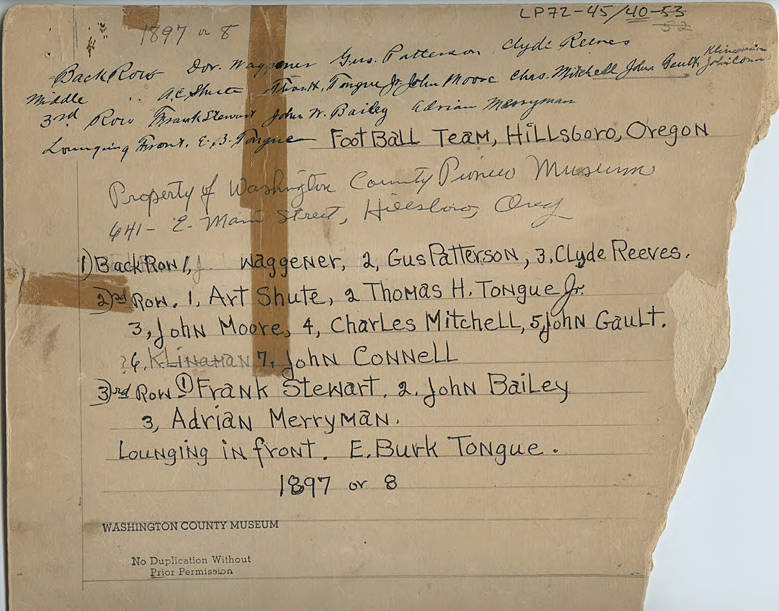 LP72-45/40-53
52
1897 or 8
Back Row Dor. Waggener Gus. Patterson Clyde Reeves
Middle " A.C. Shute Thos H. Tongue Jr John Moore Chas. Mitchell John Gault Klinaman John Conn
3rd Row Frank Stewart John W. Bailey Adrian Merryman
Lounging Front. E. B. Tongue Football Team, Hillsboro, Oregon
Property of Washington County Pioneer Museum
641- E. Main Street, Hillsboro, Oreg
1) Back Row 1, J. Waggener, 2, Gus Patterson, 3, Clyde Reeves.
2) nd Row. 1, Art Shute, 2 Thomas H. Tongue Jr.
3, John Moore, 4, Charles Mitchell, 5, John Gault.
?6. Klinaman 7, John Connell
3) rd Row ① Frank Stewart. 2. John Bailey
3, Adrian Merryman.
Lounging in front. E. Burk Tongue.
1897 or 8
WASHINGTON COUNTY MUSEUM
No Duplication Without
Prior Permission